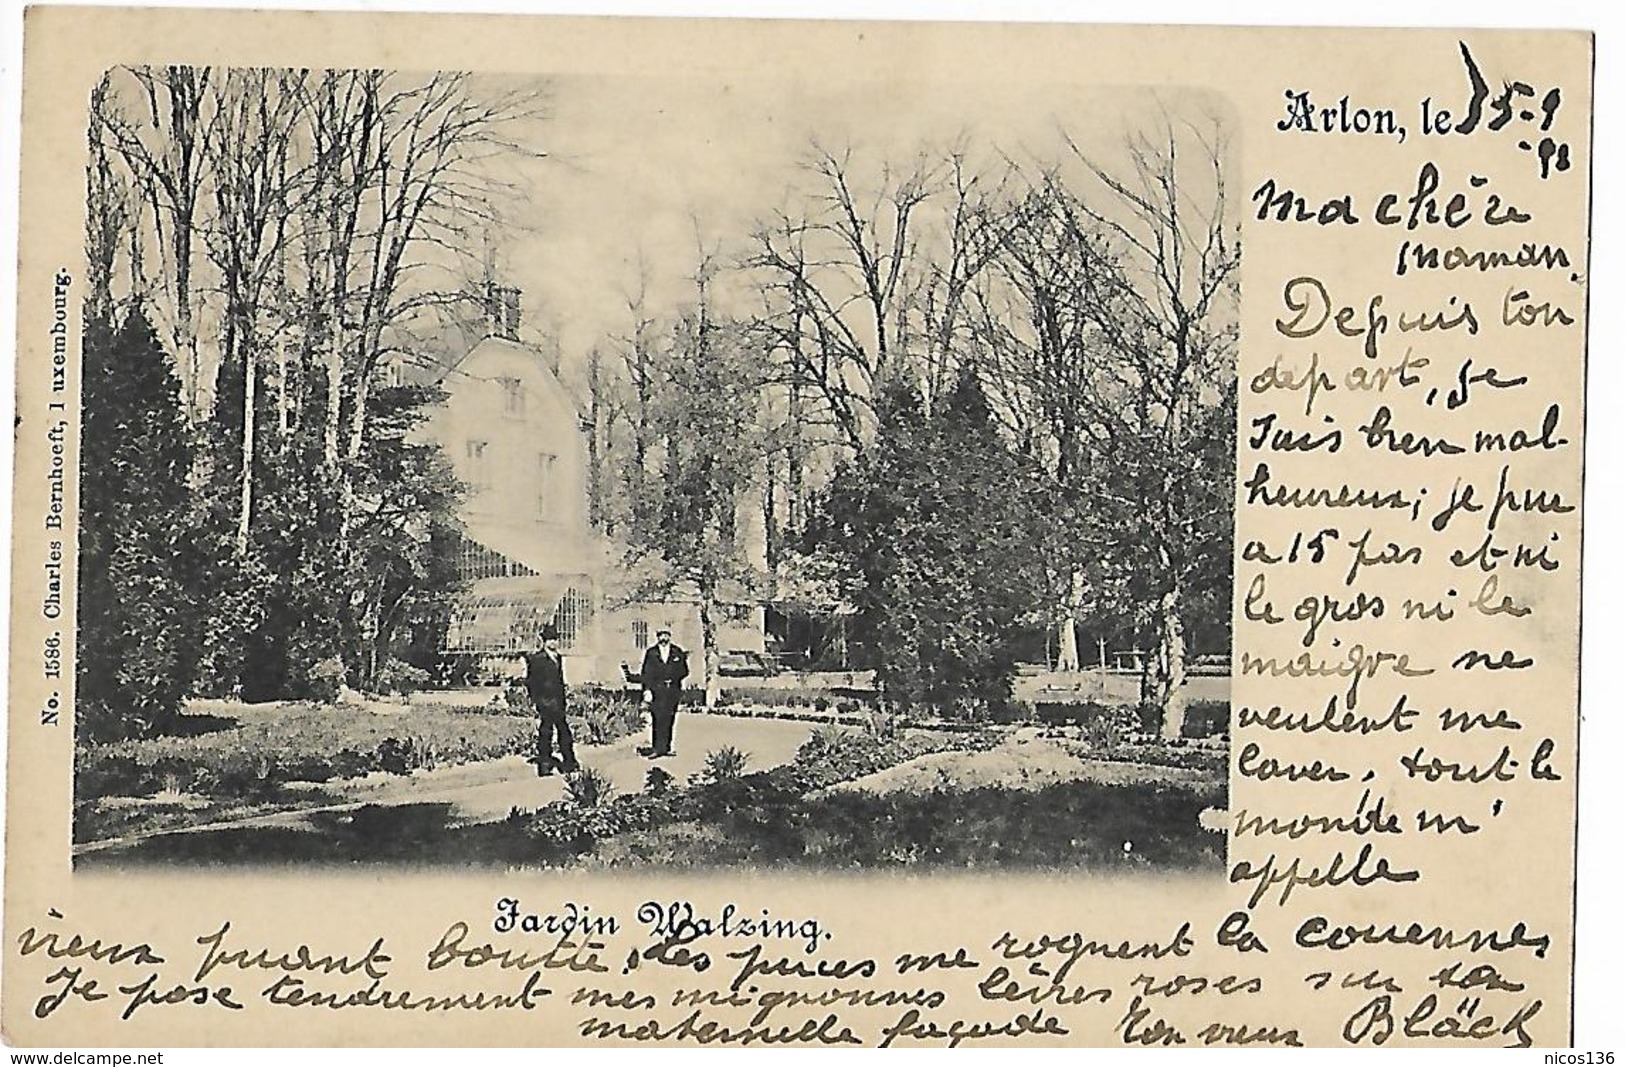 Arlon, le 15-9
-98
Ma chère
maman,
Depuis ton
départ, je
suis bien mal-
heureux; je pue
a 15 pas et ni
le gros ni le
maigre ne
veulent me
laver, tout le
monde m'
appelle
vieux puant boutte. Les puces me rognent la couenne,
Je pose tendrement mes mignonnes lèvres roses sur ta
maternelle façade Ton vieux Bläck
Jardin Walzing.
No. 1586. Charles Bernhoeft, Luxembourg.
nicos136